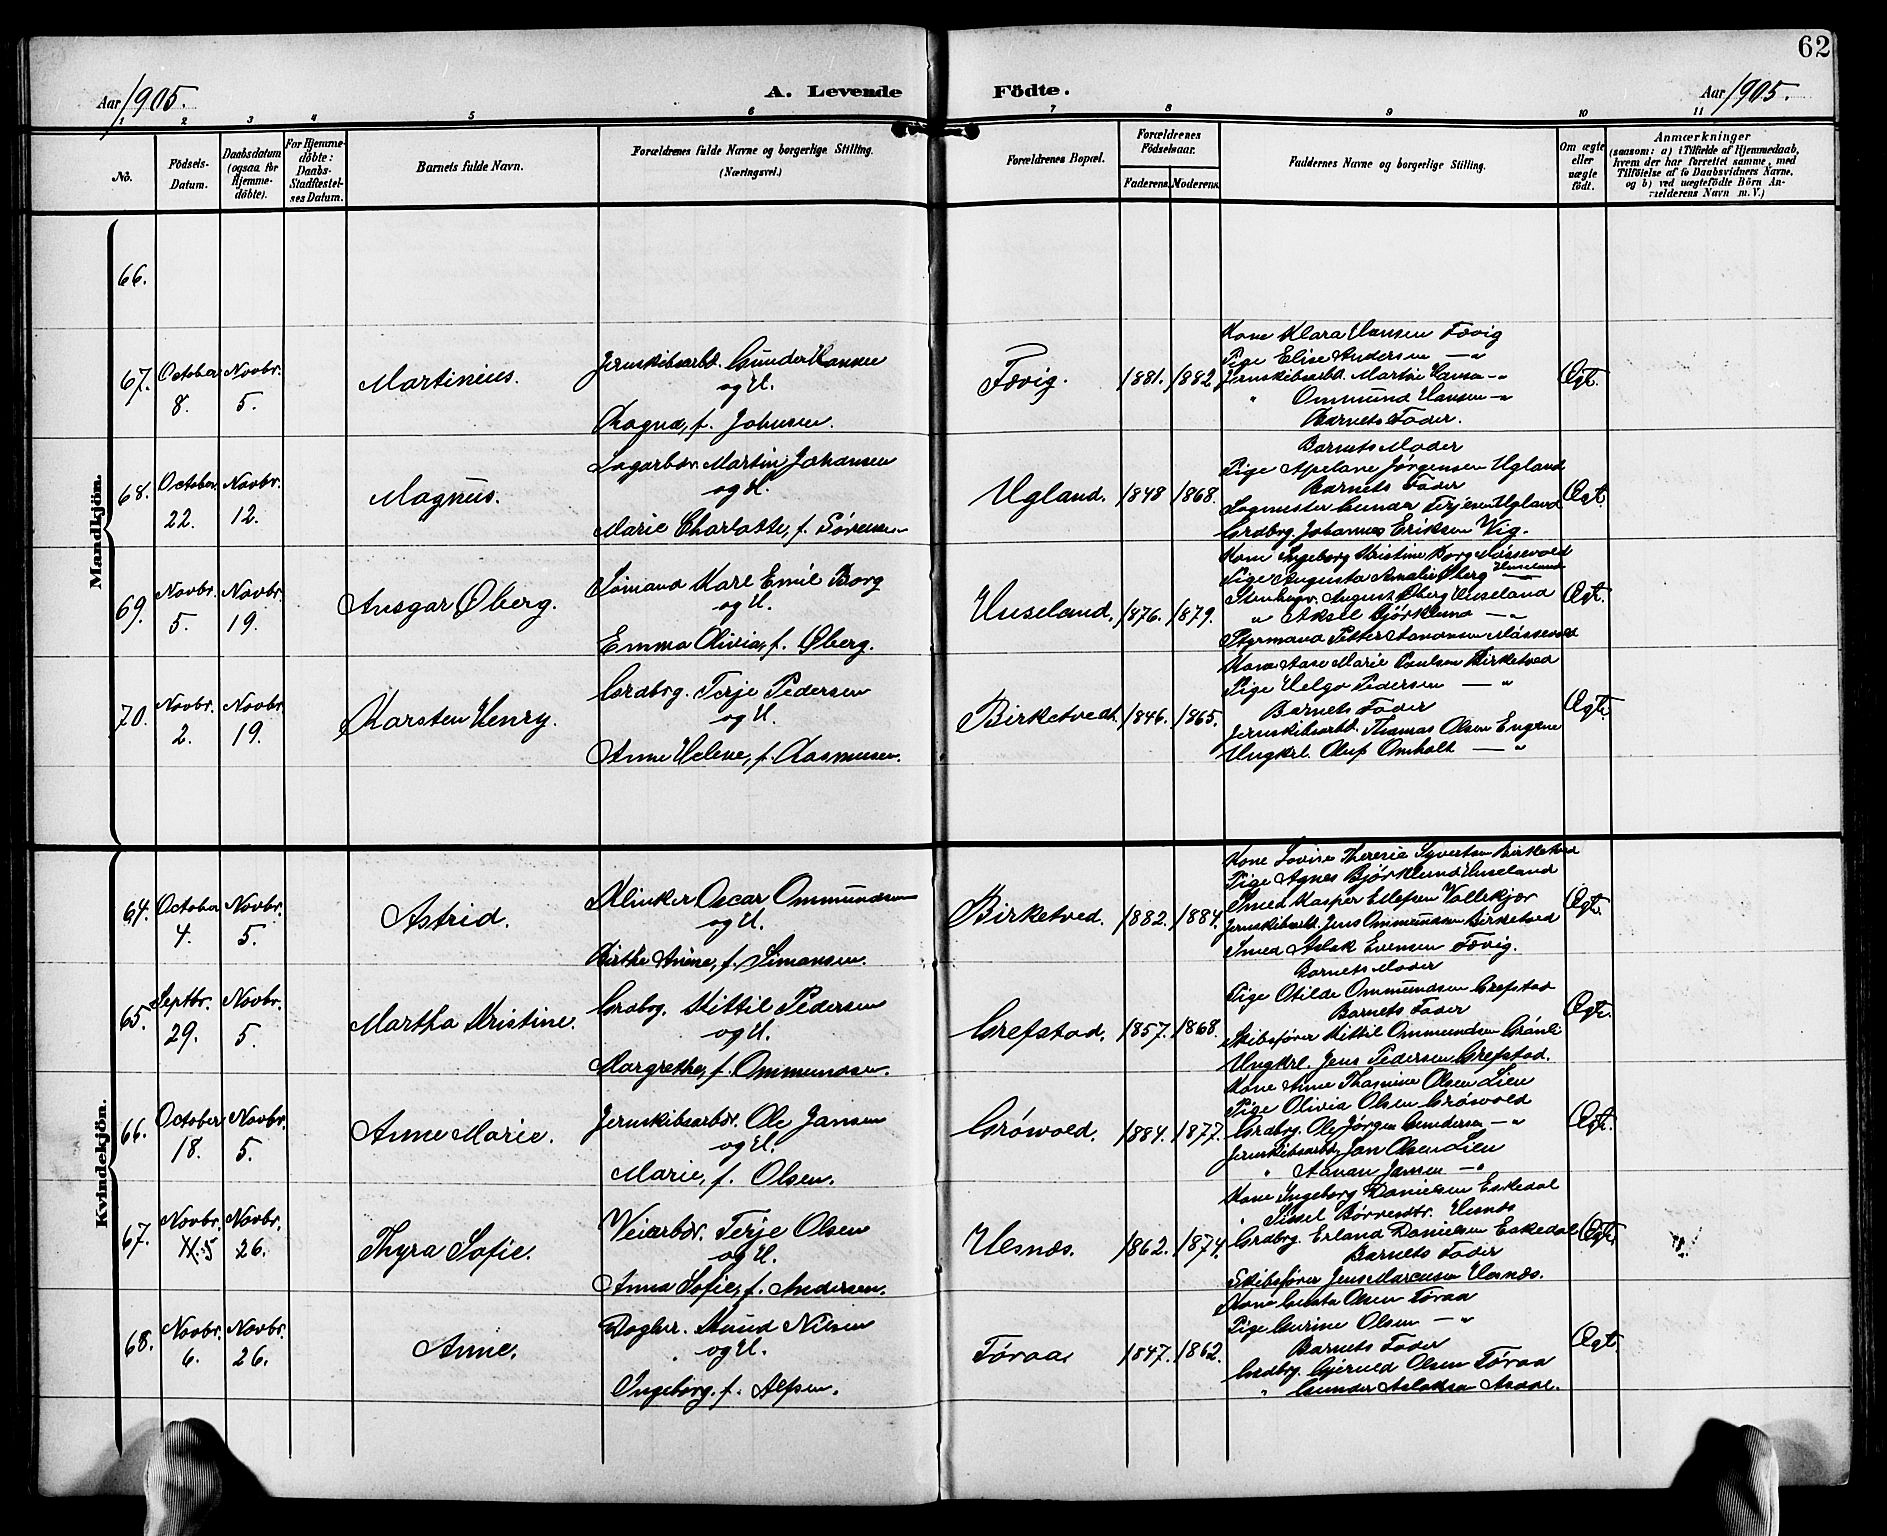 62
Aar 1905.
A. Levende Födte.
Aar 1905.
1 2 3 4 5 6 7 8 9 10 11
No.
Födsels-Datum.
Daabsdatum (ogsaa for Hjemme-döbte).
For Hjemme-döbte: Daabs-Stadfæstel-ses Datum.
Barnets fulde Navn.
Forældrenes fulde Navne og borgerlige Stilling. (Næringsvei.)
Forældrenes Bopæl.
Forældrenes Födselsaar.
Faderens. Moderens.
Faddernes Navne og borgerlige Stilling.
Om ægte eller uægte födt.
Anmærkninger
(saasom: a) i Tilfælde af Hjemmedaab, hvem der har forrettet samme, med Tilföielse af to Daabsvidners Navne, og b) ved uægtefödte Börn An-melderens Navn m. V.)
Mandkjön.
66.
67. October 8. Novbr. 5.
Martinius.
Jernskibsarbd. Gunder Hansen
og H.
Ragna, f. Johnsen.
Fævig. 1881. 1882
Kone Klara Hansen Fævig
Pige Elise Andersen —"
Jernskibsarbd. Martin Hansen —"
" Ommund Hansen —"
Barnets Fader.
Ægt.
68. October 22. Novbr. 12.
Magnus.
Sagarbdr. Martin Johansen
og H.
Marie Charlotte, f. Sørensen
Ugland. 1848 1868.
Barnets Moder
Pige Apelane Jørgensen Ugland
Barnets Fader
Sagmester Gunder Terjesen Ugland
Grdbrg. Johannes Eriksen Vig.
Ægt.
69. Novbr. 5. Novbr. 19.
Ansgar Øberg.
Sömand Karl Emil Borg
og H.
Emma Olivia, f. Øberg.
Huseland. 1876. 1879.
Kone Ingeborg Kristine Borg Mössevold
Pige Augusta Amalie Øberg Huseland
Stenhugr. August Øberg Huseland
" Aksel Bjørklund —"
Styrmand Petter Aanonsen Mössevold
Ægt.
70. Novbr. 2. Novbr. 19.
Karsten Henry.
Grdbrg. Terje Pedersen
og H.
Anne Helene, f. Rasmusen.
Birketvedt. 1846. 1865.
Kone Aase Marie Paulsen Birketved
Pige Helga Pedersen —"
Barnets Fader
Jernskibsarbd. Thomas Olsen Engene
Ungkrl. Oluf Omholt —"
Ægt.
Kvindekjön.
64. October 4. Novbr. 5.
Astrid.
Klinker Oscar Ommundsen
og H.
Birthe Anine, f. Simonsen.
Birketved. 1882. 1884.
Kone Lovise Theresie Syvertsen Birketved
Pige Agnes Bjørklund Huseland
Smed Kasper Ellefsen Vollekjær
Jernskibsarbd. Jens Ommundsen Birketved
Smed Aslak Evensen Fævig.
Ægt.
65. Septbr. 29. Novbr. 5.
Martha Kristine.
Grdbrg. Kittil Pedersen
og H.
Margrethe, f. Ommundsen.
Grefstad. 1857. 1868.
Barnets Moder
Pige Otilde Ommundsen Grefstad
Barnets Fader
Skibsfører Kittil Ommundsen Grönli
Ungkrl. Jens Pedersen Grefstad.
Ægt.
66. October 18. Novbr. 5.
Anne Marie.
Jernskibsarbdr. Ole Jansen
og H.
Marie, f. Olsen.
Gröwold. 1884. 1877.
Kone Anne Thomine Olsen Lien
Pige Olivia Olsen Gröwold
Grdbrg. Ole Jørgen Gundersen —"
Jernskibsarbd. Jan Olsen Lien
" Aanan Jansen —"
Ægt.
67. Novbr. 5 Novbr. 26.
Thyra Sofie.
Veiarbdr. Terje Olsen
og H.
Anna Sofie, f. Andersen.
Hesnæs. 1862. 1874.
Kone Ingeborg Danielsen Eskedal
" Sissel Børresdtr. Hesnæs
Grdbrg. Erland Danielsen Eskedal
Barnets Fader
Skibsfører Jens Marcusen Hesnæs.
Ægt.
68. Novbr. 6. Novbr. 26.
Anne.
Daglnr. Knud Nilsen
og H.
Ingeborg, f. Alfsen.
Töraa. 1847. 1862.
Kone Gusta Olsen Töraa
Pige Gurine Olsen —"
Barnets Fader
Grdbrg. Gjeruld Olsen Töraa
" Gunder Aslaksen Asdal.
Ægt.